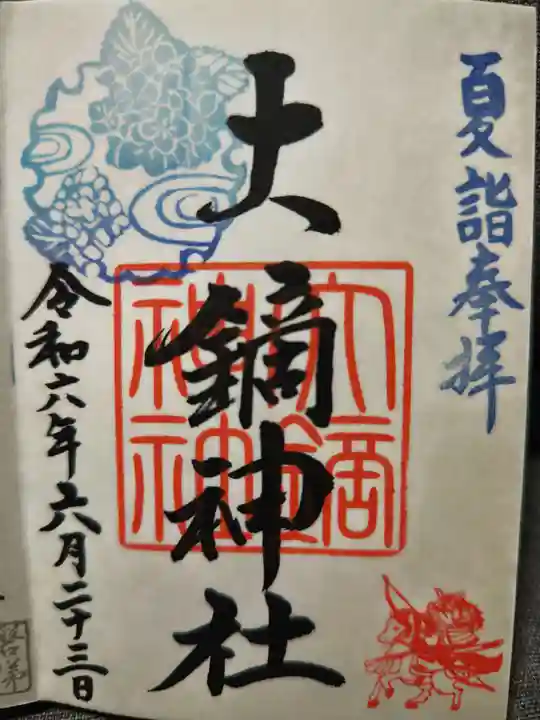 夏詣奉拝
大鏑神社
令和六年六月二十三日